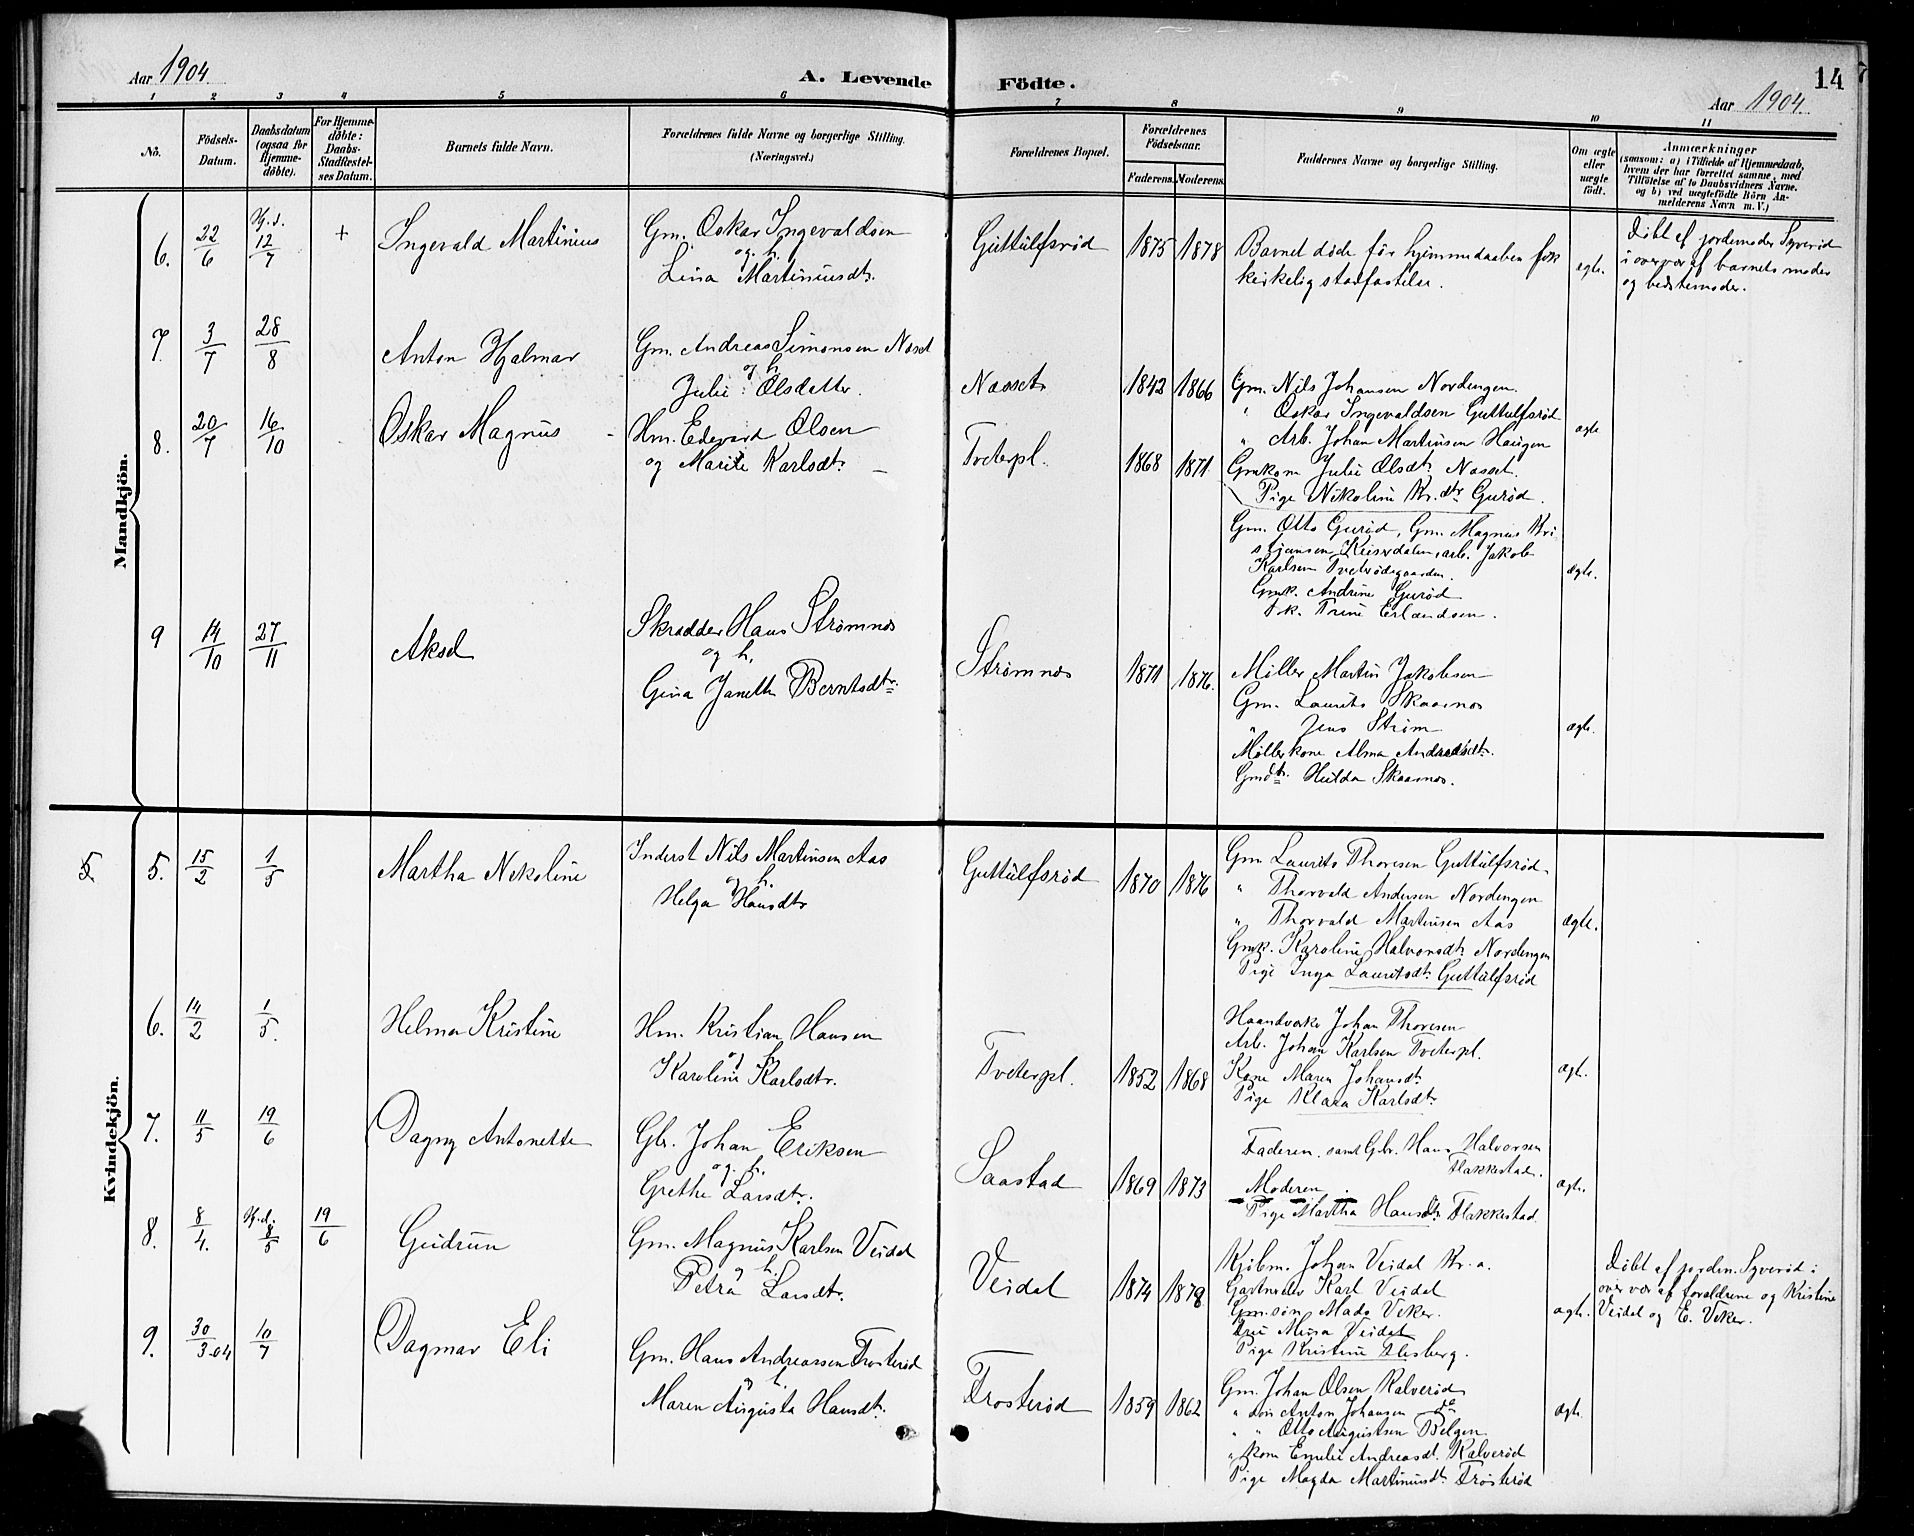 Aar 1904.
A. Levende Födte.
14
Aar 1904.
1 2 3 4 5 6 7 8 9 10 11
No.
Födsels-
Datum.
Daabsdatum
(ogsaa for
Hjemme-
döbte).
For Hjemme-
döbte:
Daabs-
Stadfæstel-
ses Datum.
Barnets fulde Navn.
Forældrenes fulde Navne og borgerlige Stilling.
(Næringsvei.)
Forældrenes Bopæl.
Forældrenes
Födselsaar.
Faderens. Moderens.
Faddernes Navne og borgerlige Stilling.
Om ægte
eller
uægte
födt.
Anmærkninger
(saasom: a) i Tilfælde af Hjemmedaab,
hvem der har forrettet samme, med
Tilföielse af to Daabsvidners Navne.
og b) ved uægtefödte Börn An-
melderens Navn m. V.)
Mandkjön.
6. 22/6 Hj.d. 12/7 + Ingevald Martinius
Gm. Oskar Ingevaldsen
og h.
Lina Martiniusdtr.
Guttulfsrød 1875 1878
Barnet døde før hjemmedaaben fik
kirkelig stadfæstelse.
egte.
Døbt af jordemoder Syverød
i overvær af barnets moder
og bedstemoder.
7. 3/7 28/8 Anton Hjalmar
Gm. Andreas Simonsen Næset
og h.
Julie Olsdatter.
Næsset 1842 1866
Gm. Nils Johansen Nordengen.
" Oskar Ingevaldsen Guttulfsrød
" Arb. Johan Martinsen Haugen
Gmkone Julie Olsdtr. Næsset.
Pige Nikoline Kr.dtr Gurød.
ægte
8. 20/7 16/10 Oskar Magnus
Hm. Edevard Olsen
og Marite Karlsdtr.
Tveterpl. 1868 1871
Gm. Otto Gurød, Gm. Magnus Kri-
stjansen Keiserdalen, arb. Jakob
Karlsen Tveterødegaarden.
Gmk. Andrine Gurød
Pk. Trine Erlandsen.
ægte.
9 14/10 27/11 Aksel
Skrædder Hans Strømnæs
og h.
Gina Janette Berntsdtr.
Strømnæs 1871 1876.
Møller Martin Jakobsen
Gm. Laurits Skaarnæs
" Jens Strøm
Møllerkone Alma Andreasdtr.
Gmdtr. Hulda Skaarnæs.
ægte.
Kvindekjön.
5. 5. 15/2 1/5 Martha Nikoline
Inderst Nils Martinsen Aas
og h.
Helga Hansdtr
Guttulfsrød 1870 1876
Gm Laurits Thoresen Guttulfsrød.
" Thorvald Andersen Nordengen
" Thorvald Martinsen Aas
Gmk. Karoline Halvorsdtr. Nordengen
Pige Inga Lauritsdtr. Guttulfsrød
ægte.
6. 14/2 1/5. Helma Kristine
Hm. Kristian Hansen
og h
Karoline Karlsdtr.
Tveterpl. 1852 1868
Haandværker Johan Thoresen
Arb. Johan Karlsen Tveterpl.
Kone Maren Johansdtr
Pige Klara Karlsdtr.
ægte.
7. 11/5 19/6 Dagny Antonette
Gbr. Johan Eriksen
og h.
Grethe Larsdtr.
Saastad 1869 1873
Faderen. samt Gbr. Hans Halvorsen
Flakkestad.
Moderen.
Pige Martha Hansdtr. Flakkestad
ægte.
8. 8/4. Hj.d. 8/5 19/6 Gudrun
Gm. Magnus Karlsen Veidal
og h.
Petra Larsdtr.
Veidal 1874 1878
Kjøbm. Johan Veidal Kr.a.
Gaardmeder Karl Veidal
Gm.søn Mads Veker.
Fru Mina Veidal
Pige Kristine Elisberg.
ægte.
Døbt af jordm. Syverød i
overvær af forældrene og Kristine
Veidal og E. Veker.
9. 30/3.04 10/7 Dagmar Eli
Gm. Hans Andreassen Frosterød
og h.
Maren Augusta Hansdtr.
Frosterød 1859 1862
Gm. Johan Olsen Kalverød
" søn Anton Johansen do
" " Otto Augustsen Belgen
" kone Emelie Andreasdt. Kalverød
Pige Magda Martinusdt. Frosterød
ægte.